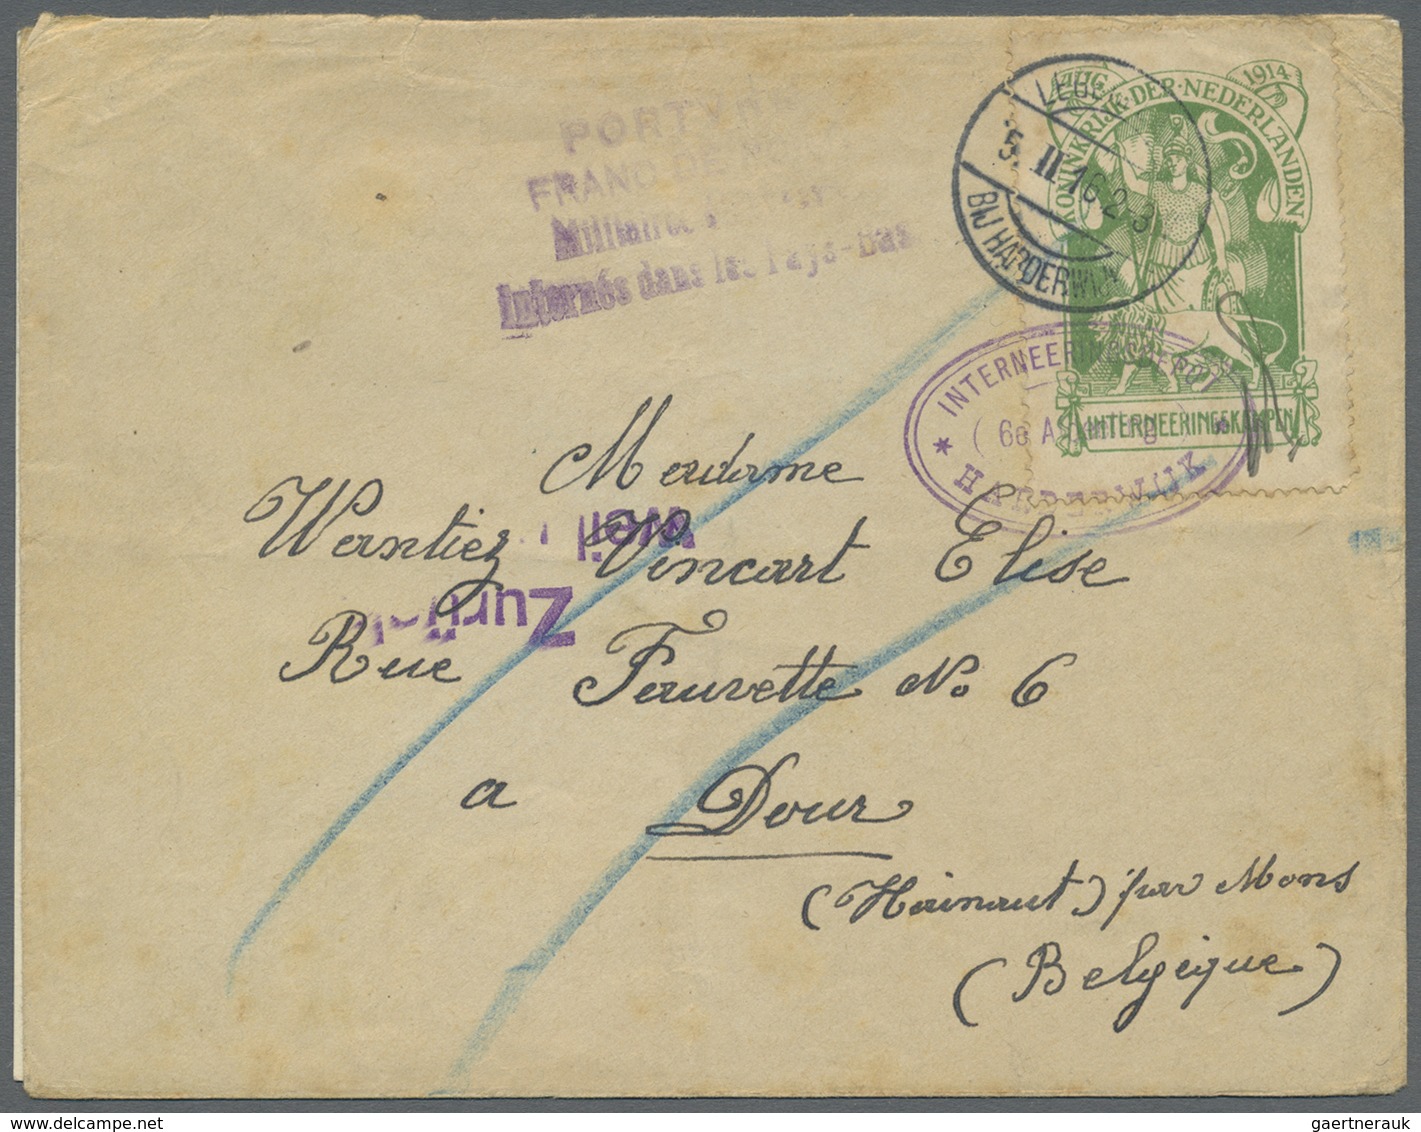 PORTVRIJ
FRANC DE PORT
Militaires
Internés dans les Pays-Bas
LEGER
5. II. 16. 2-3
BIJ HARDERWIJK
AUG 1914
KONINKRIJK·DER·NEDERLANDEN
INTERNEERINGSKAMPEN
INTERNEERINGSDEPOT
HARDERWIJK
Madame
Wantiez Vincart Elise
Rue Fauvette No 6
a Dour
(Hainaut) par Mons
(Belgique)
Zurück
weil
gaertnerauk@delcampe.net